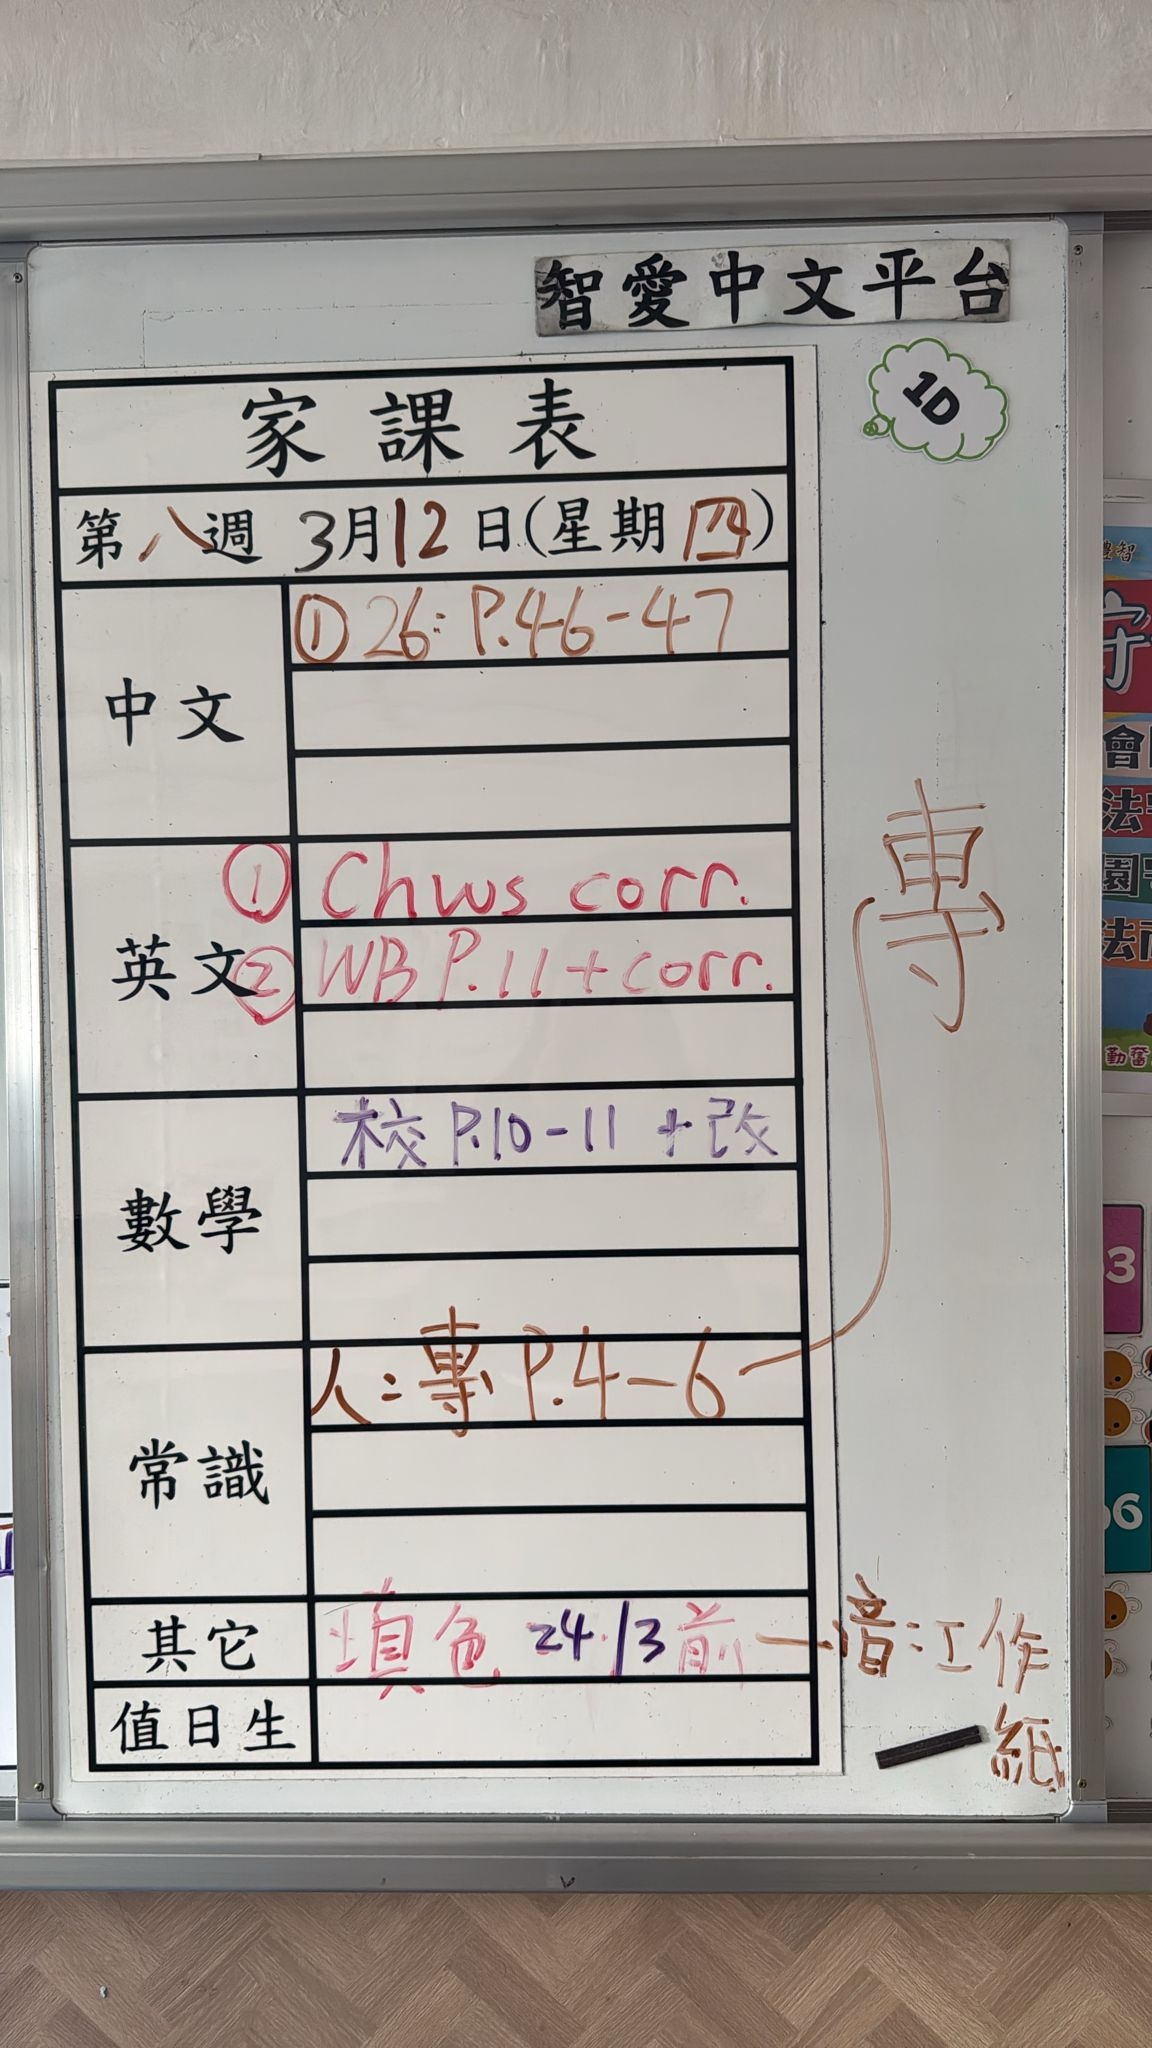 智愛中文平台
1D
家課表
第八週 3月12日(星期四)
中文
①26: P.46-47
英文
① Chws corr.
② WB P.11+corr.
專
數學
校 P.10-11 +改
常識
人:專 P.4-6
其它
填色 24/3前 一音江作
紙
值日生
豊智
守
會
法守
園守
法
勤奮
3
06